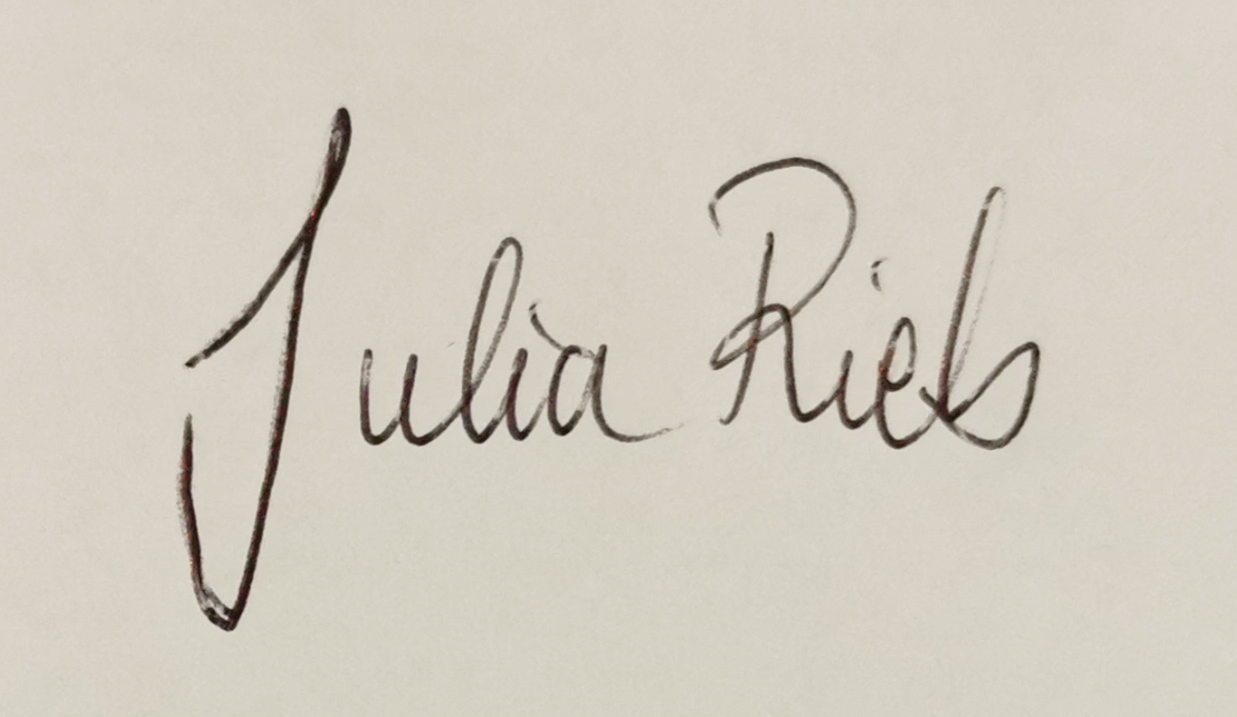 Julia Riels